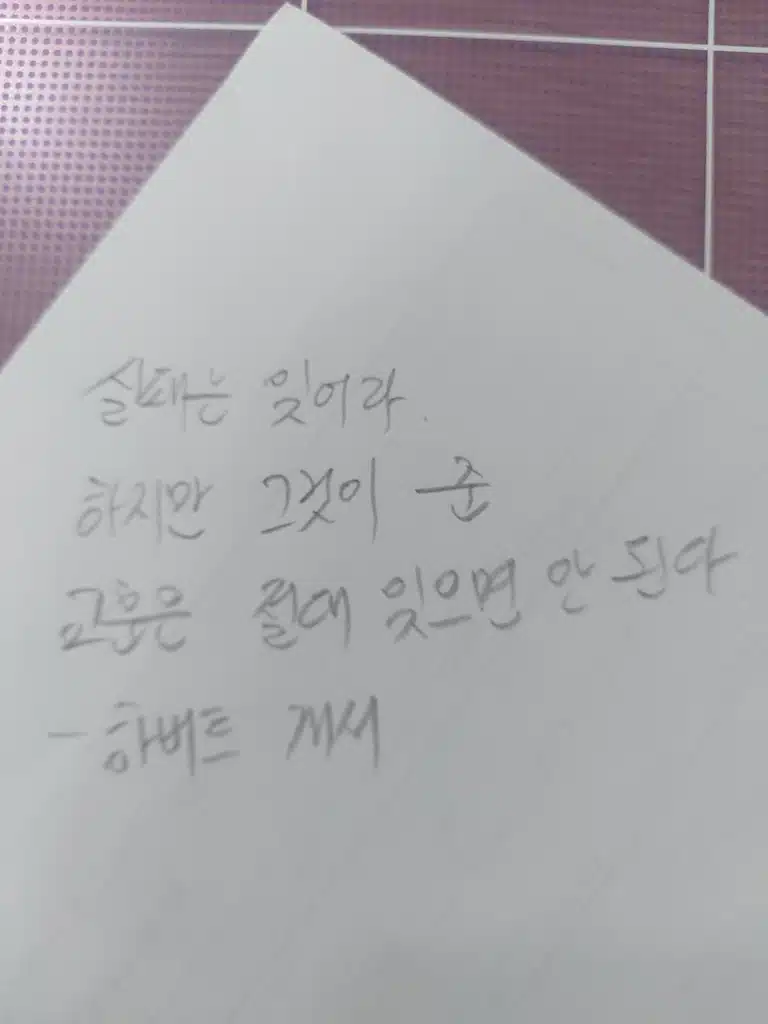 실패는 잊어라.
하지만 그것이 준
교훈은 절대 잊으면 안 된다
- 하버트 개서